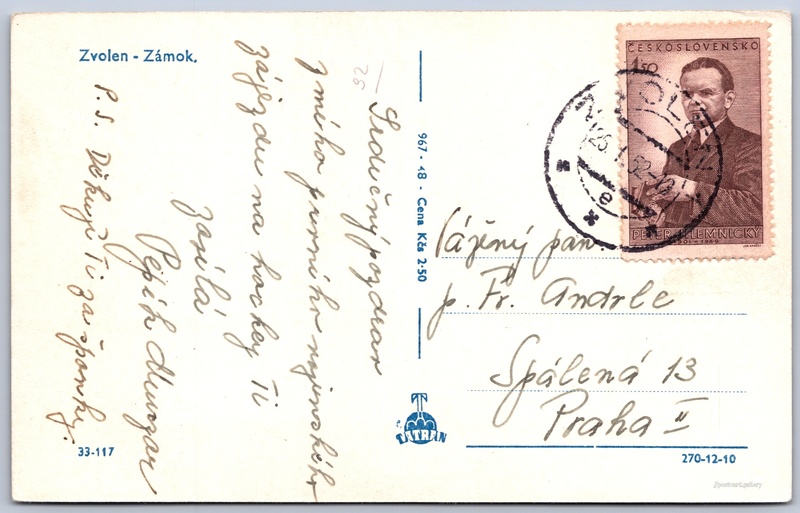 Zvolen - Zámok.
92
Srdečný pozdrav
z mého prvního vojenského
zájezdu na hockey Ti
zasílá
Pepík
P.S. Děkuji Ti za sponky.
967 - 48 - Cena Kčs 2·50
ČESKOSLOVENSKO
1,50
PETER JILEMNICKÝ
1901 - 1949
Vážený pan
p. Fr. Andrle
Spálená 13
Praha II
TATRAN
33-117
270-12-10